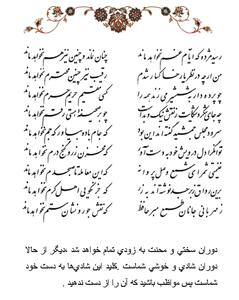 رسید مژده که ایام غم نخواهد ماند چنان نماند و چنین نیز هم نخواهد ماند
من ار چه در نظر یار خاکسار شدم رقیب نیز چنین محترم نخواهد ماند
چو پرده دار به شمشیر می زند همه را کسی مقیم حریم حرم نخواهد ماند
چه جای شکر و شکایت ز نقش نیک و بد است چو بر صحیفه هستی رقم نخواهد ماند
سرود مجلس جمشید گفته اند این بود که جام باده بیاور که جم نخواهد ماند
توانگرا دل درویش خود به دست آور که مخزن زر و گنج درم نخواهد ماند
غنیمتی شمر ای شمع وصل پروانه که این معامله تا صبحدم نخواهد ماند
بدین رواق زبرجد نوشته اند به زر که جز نکویی اهل کرم نخواهد ماند
ز مهربانی جانان طمع مبر حافظ که نقش جور و نشان ستم نخواهد ماند
دوران سختي و محنت به زودي تمام خواهد شد ،ديگر از حالا
دوران شادي و خوشي شماست .کليد اين شادي‌ها به دست خود
شماست پس مواظب باشيد که آن را از دست ندهيد .